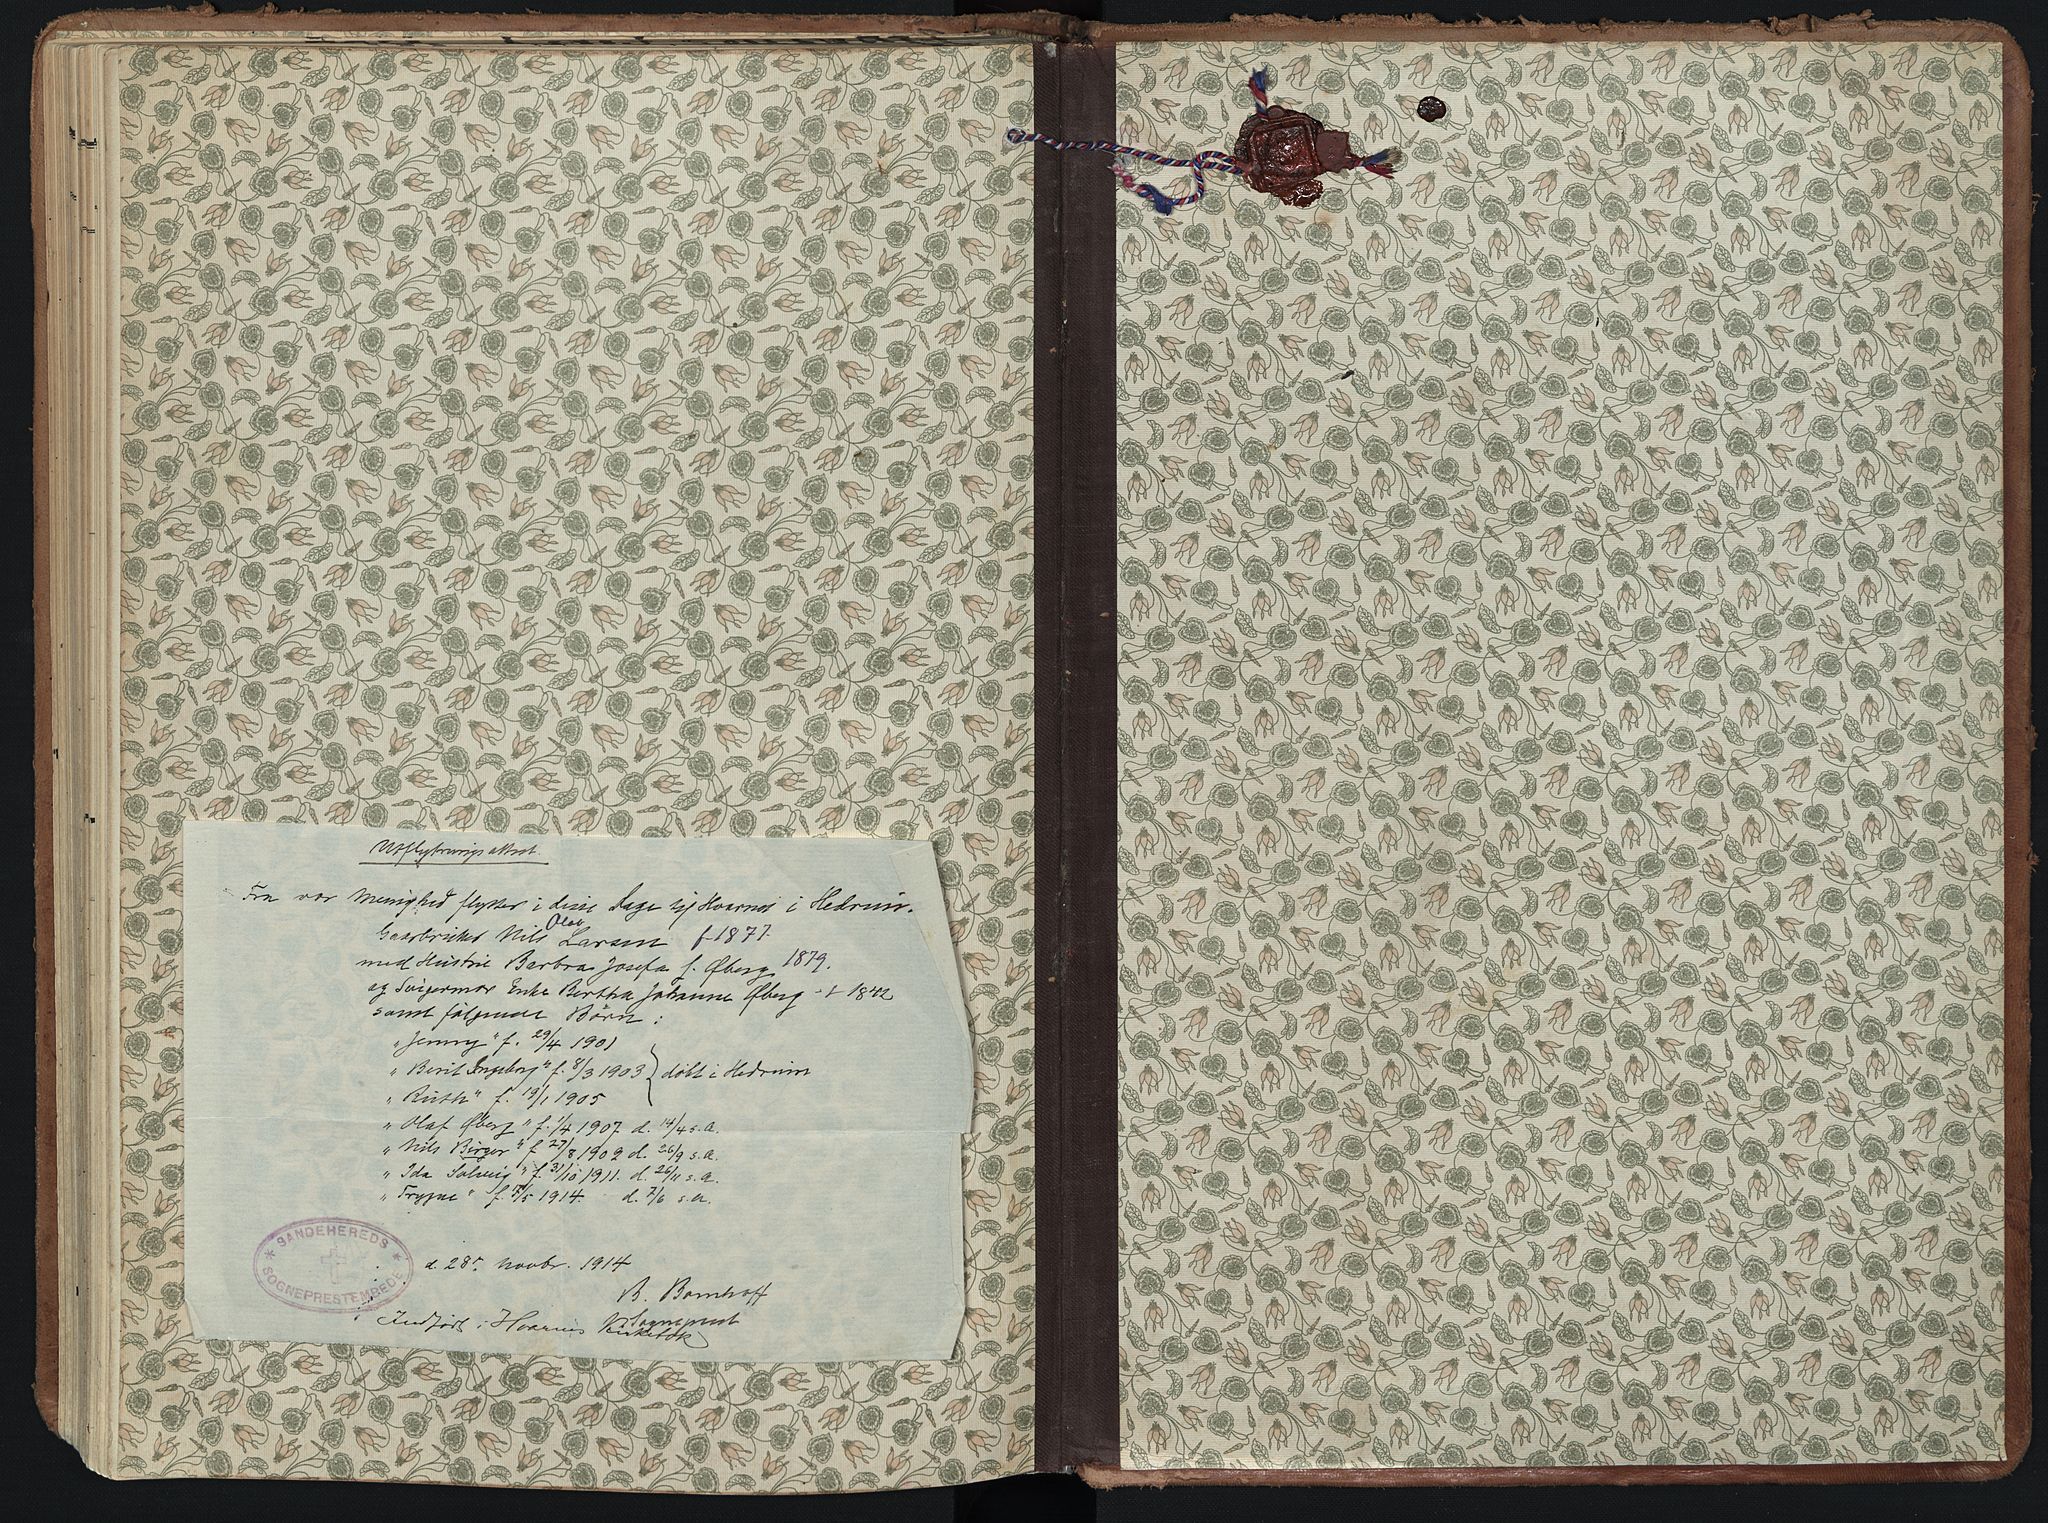 Utflytningsattest
Fra vor Menighed flytter i disse Dage til Hvarnes i Hedrum.
Gaardbruker Nils Olai Larsen f 1877.
med Hustru Barbra Josefa f. Øberg 1879.
og Svigermor Enke Berthe Johanne Øberg - f 1842
samt følgende Børn:
"Jenny" f. 29/4 1901
"Berit Ingeborg" f. 8/3 1903 } døbt i Hedrum
"Ruth" f. 19/1 1905
"Olaf Øberg" f. 1/4 1907 d. 14/4 s.a.
"Nils Birger" f 27/8 1909 d. 26/9 s.a.
"Ida Solveig" f 31/10 1911. d. 26/11 s.a.
"Trygve" f. 5/5 1914. d. 7/6 s.a.
SANDEHEREDS
SOGNEPRESTEMBEDE
d. 28. novbr. 1914
B. Bomhoff
Sogneprest
Indført i Hvarnes Kirkebok